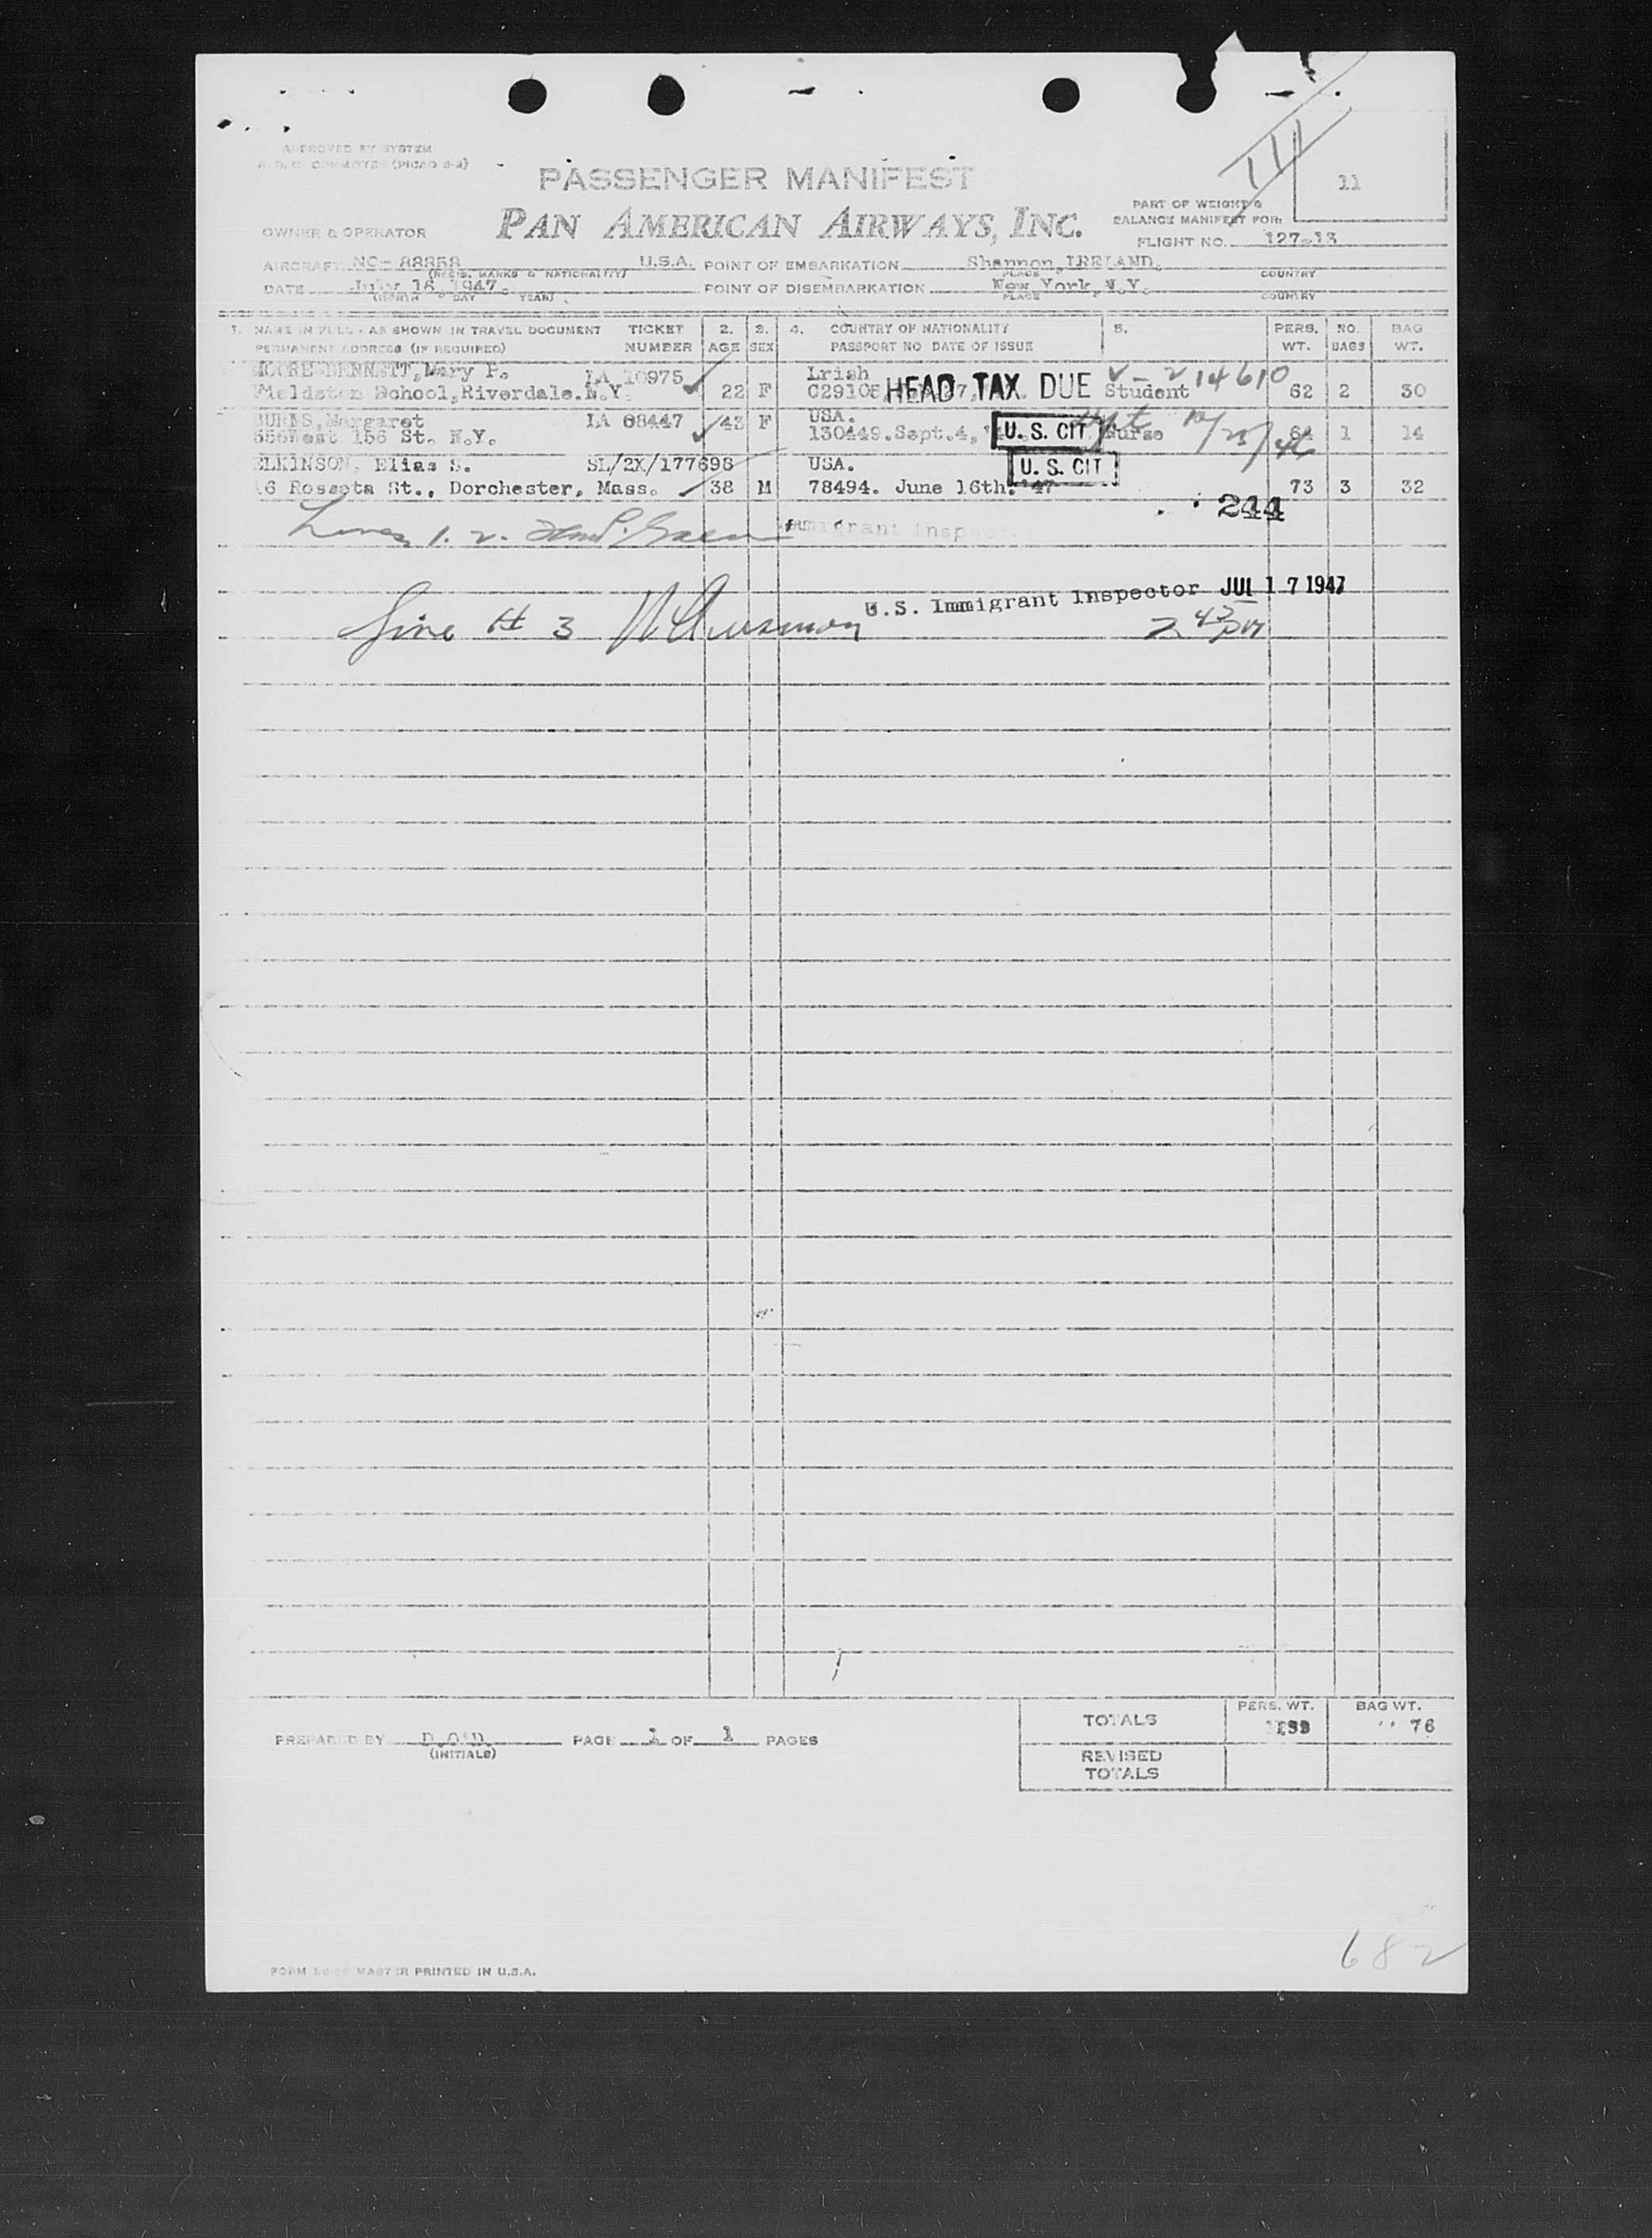 APPROVED BY SYSTEM
PASSENGER MANIFEST
11
PAN AMERICAN AIRWAYS, INC.
OWNER & OPERATOR
PART OF WEIGHT &
BALANCE MANIFEST FOR:
FLIGHT NO. 127-13
AIRCRAFT NC- 88858 U.S.A. POINT OF EMBARKATION Shannon, IRELAND.
(REGIS. MARKS & NATIONALITY) PLACE COUNTRY
DATE July 16, 1947. POINT OF DISEMBARKATION New York, N.Y.
(MONTH DAY YEAR) PLACE COUNTRY
1. NAME IN FULL - AS SHOWN IN TRAVEL DOCUMENT TICKET 2. 3. 4. COUNTRY OF NATIONALITY 5. PERS. NO. BAG
PERMANENT ADDRESS (IF REQUIRED) NUMBER AGE SEX PASSPORT NO DATE OF ISSUE WT. BAGS WT.
MOORE-BENNETT, Mary P. LA 10975 Lrish V-214610
Fieldston School, Riverdale. N.Y. 22 F C29105 HEAD TAX DUE Student 62 2 30
BURNS, Margaret LA 08447 43 F USA.
West 156 St. N.Y. 130449. Sept. 4, U. S. CIT Nurse 64 1 14
ELKINSON, Elias S. SL/2X/177698 USA. U. S. CIT
16 Rosseta St., Dorchester, Mass. 38 M 78494. June 16th. '47 73 3 32
244
Lines 1. 2. Immigrant Inspector
U.S. Immigrant Inspector JUL 17 1947
Line # 3 2 45 pm
TOTALS PERS. WT. BAG WT.
199 76
PREPARED BY D.O'D. PAGE 1 OF 1 PAGES
(INITIALS)
REVISED
TOTALS
682
FORM MASTER PRINTED IN U.S.A.